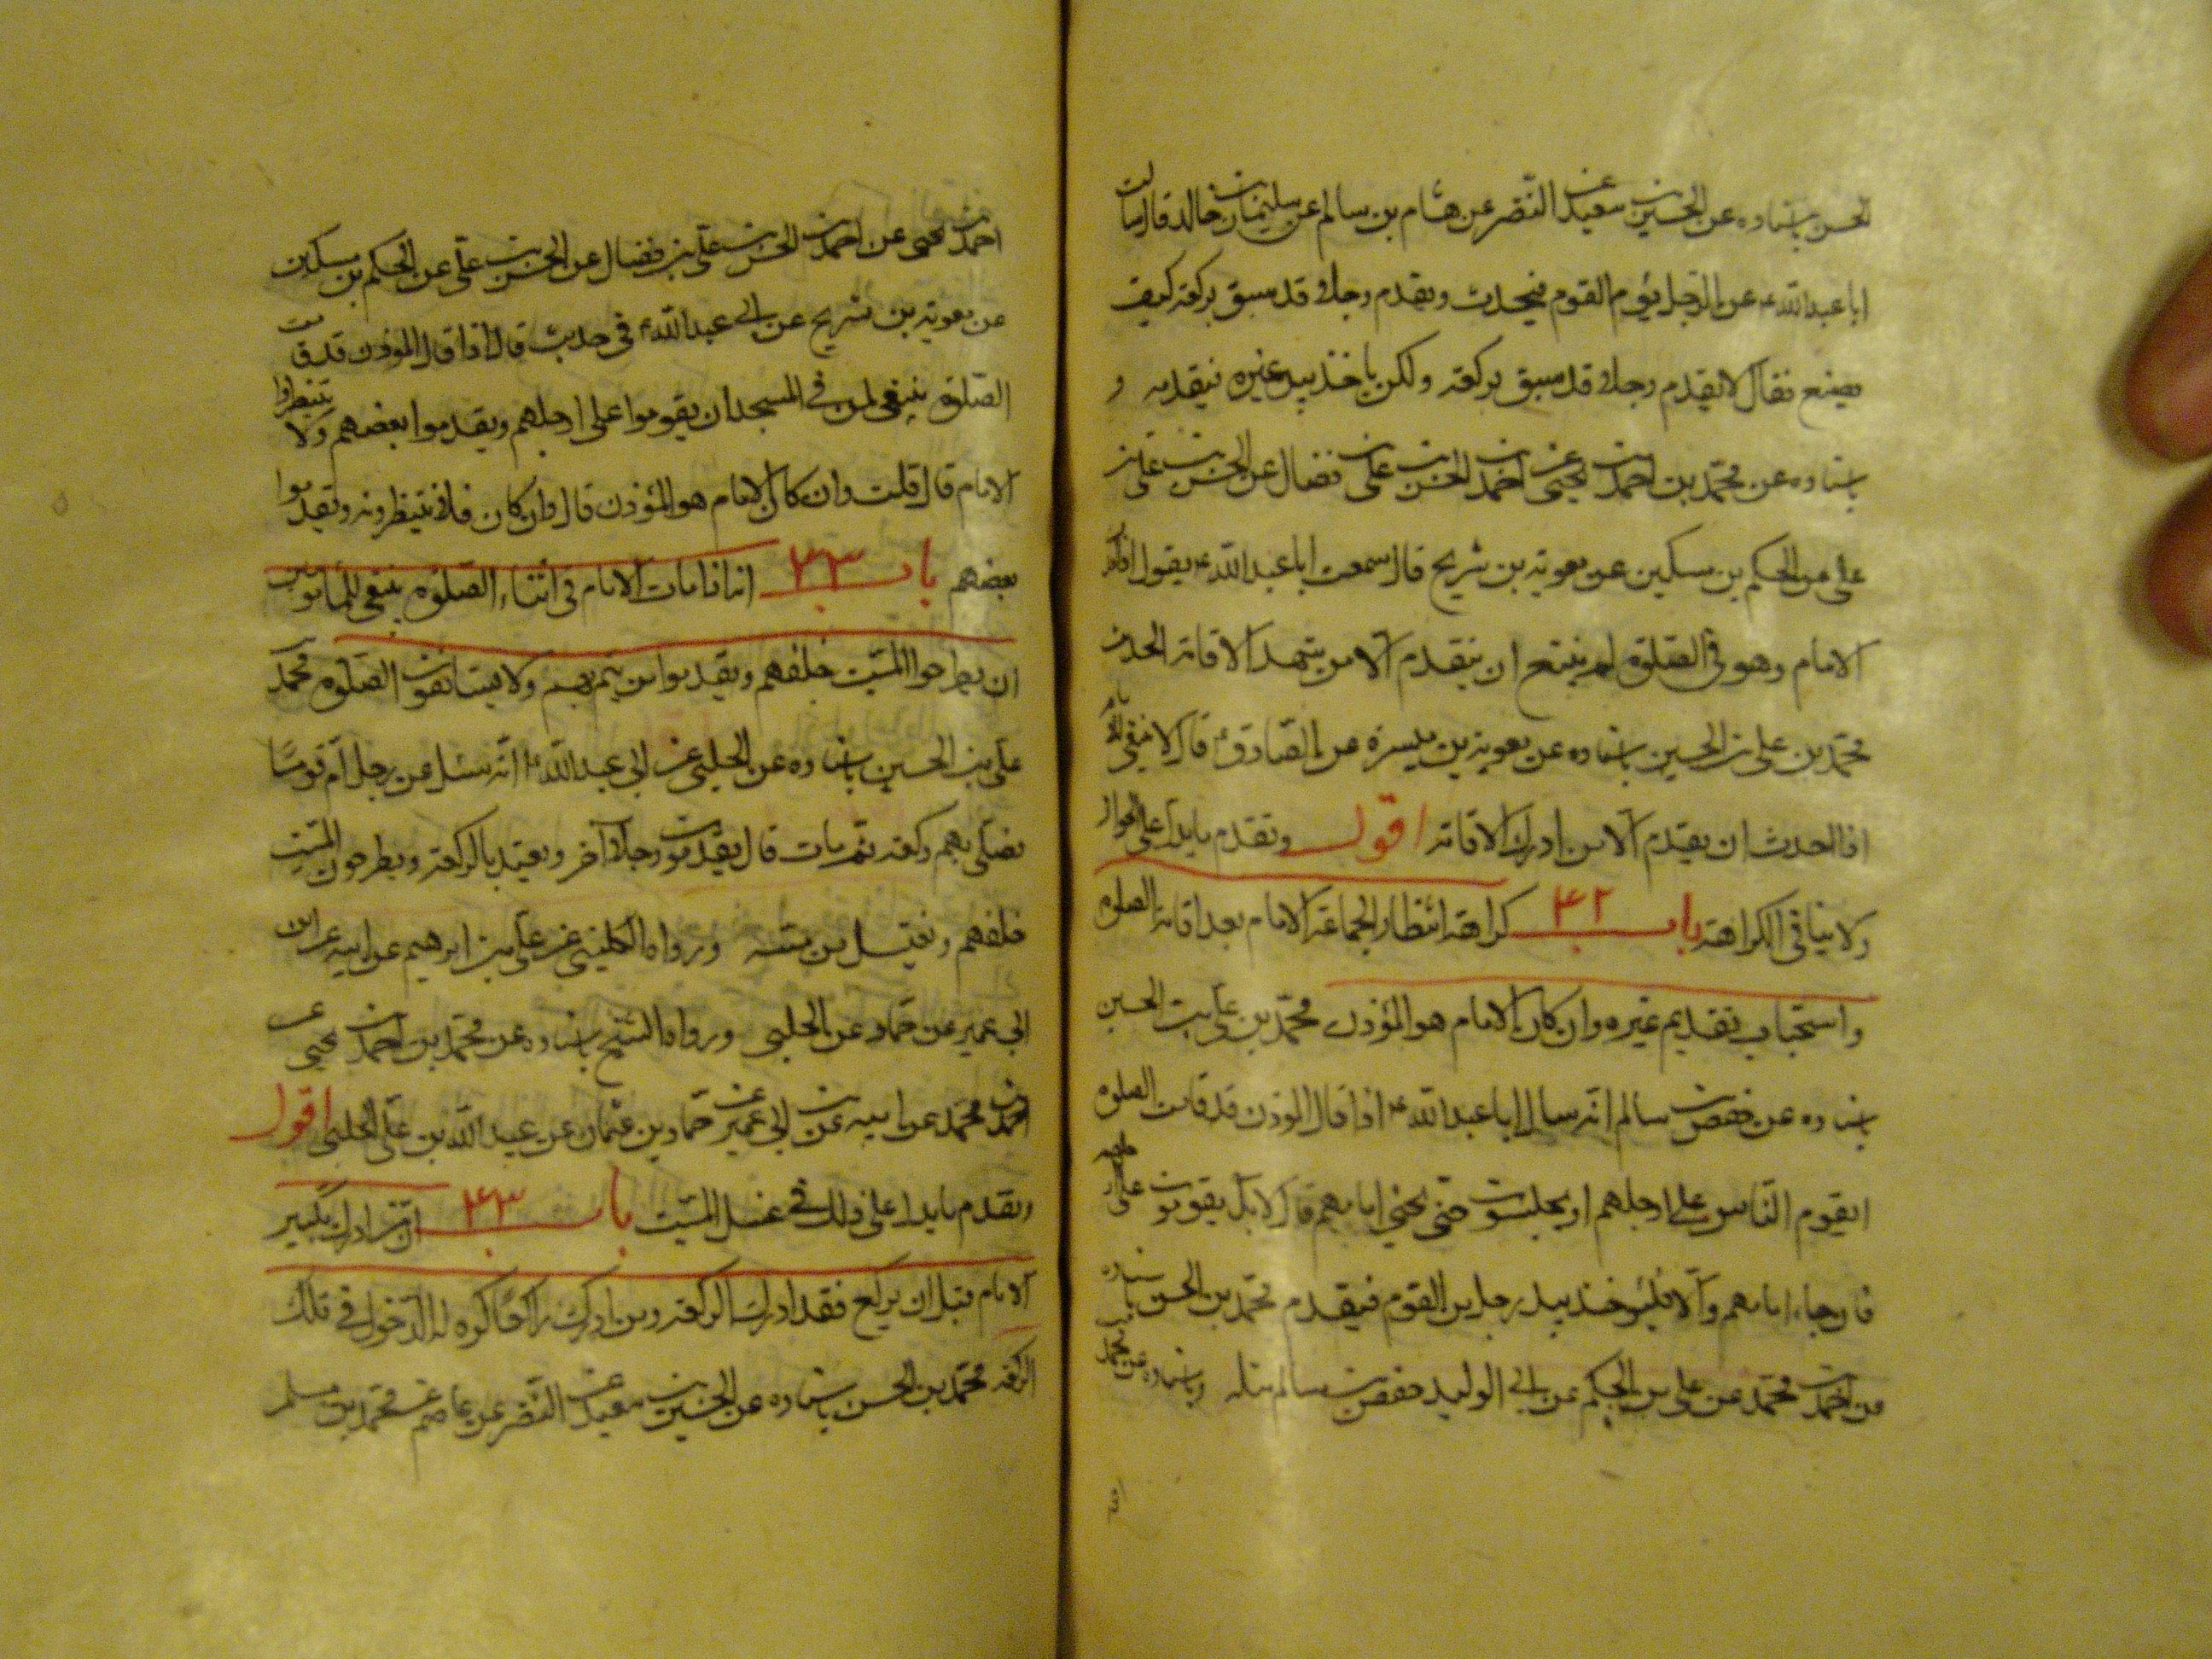 الحسن باسناده عن الحسين بن سعيد عن النضر عن هشام بن سالم عن سليمان بن خالد قال سالت
ابا عبد الله ع عن الرجل يؤم القوم فيحدث ويقدم رجلا قد سبق بركعة كيف
يصنع فقال لا يقدم رجلا قد سبق بركعة ولكن ياخذ بيد غيره فيقدمه و
باسناده عن محمد بن احمد بن يحيى عن احمد بن الحسن بن علي بن فضال عن الحسن بن علي عن
علي عن الحكم بن مسكين عن معوية بن شريح قال سمعت ابا عبد الله ع يقول اذا احدث
الامام وهو في الصلوة لم ينبغ ان يتقدم الا من شهد الاقامة الحديث
محمد بن علي بن الحسين باسناده عن معوية بن ميسرة عن الصادق ع قال لا ينبغي للامام
اذا احدث ان يقدم الا من ادرك الاقامة اقول وتقدم ما يدل على الجواز
ولا ينافي الكراهة باب ٤٢ كراهة انتظار الجماعة الامام بعد اقامة الصلوة
واستحباب تقديم غيره وان كان الامام هو المؤذن محمد بن علي بن الحسين
باسناده عن حفص بن سالم انه سال ابا عبد الله ع اذا قال المؤذن قد قامت الصلوة
ايقوم الناس على ارجلهم او يجلسون حتى يجئ امامهم قال لا بل يقومون على ارجلهم
فان جاء امامهم والا فليؤخذ بيد رجل من القوم فيقدم محمد بن الحسن باسناده
عن احمد بن محمد عن علي بن الحكم عن ابي الوليد حفص بن سالم مثله وباسناده عن محمد بن
احمد بن يحيى عن احمد بن الحسن بن علي بن فضال عن الحسن بن علي عن الحكم بن مسكين
عن معوية بن شريح عن ابي عبد الله ع في حديث قال اذا قال المؤذن قد قامت
الصلوة ينبغي لمن في المسجد ان يقوموا على ارجلهم ويقدموا بعضهم ولا ينتظروا
الامام قال قلت وان كان الامام هو المؤذن قال وان كان فلا ينتظرونه ويقدموا
بعضهم باب ٤٣ اذا مات الامام في اثناء الصلوة ينبغي للمامومين
ان يطرحوا الميت خلفهم ويقدموا من يتم بهم ولا يستانفون الصلوة محمد بن
علي بن الحسين باسناده عن الحلبي عن ابي عبد الله ع انه سئل عن رجل ام قوما
فصلى بهم ركعة ثم مات قال يقدمون رجلا آخر ويعتد بالركعة ويطرحون الميت
خلفهم ويغتسل من مسه ورواه الكليني عن علي بن ابراهيم عن ابيه عن ابن
ابي عمير عن حماد عن الحلبي ورواه الشيخ باسناده عن محمد بن احمد بن يحيى عن
احمد بن محمد عن ابيه عن ابن ابي عمير عن حماد بن عثمان عن عبيد الله بن علي الحلبي اقول
وتقدم ما يدل على ذلك في غسل الميت باب ٤٣ ان من ادرك تكبير
الامام قبل ان يركع فقد ادرك الركعة ومن ادركه راكعا كره له الدخول في تلك
الركعة محمد بن الحسن باسناده عن الحسين بن سعيد عن النضر عن عاصم عن محمد بن مسلم